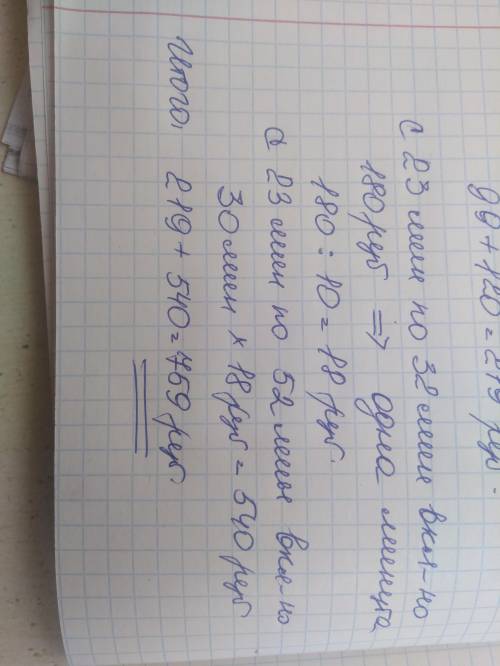 99 + 120 = 219 руб.
С 23 мин по 32 мин вкл-но
180 руб ⇒ одна минута
180 : 10 = 18 руб.
С 23 мин по 52 мин вкл-но
30 мин × 18 руб = 540 руб
Итого: 219 + 540 = 759 руб